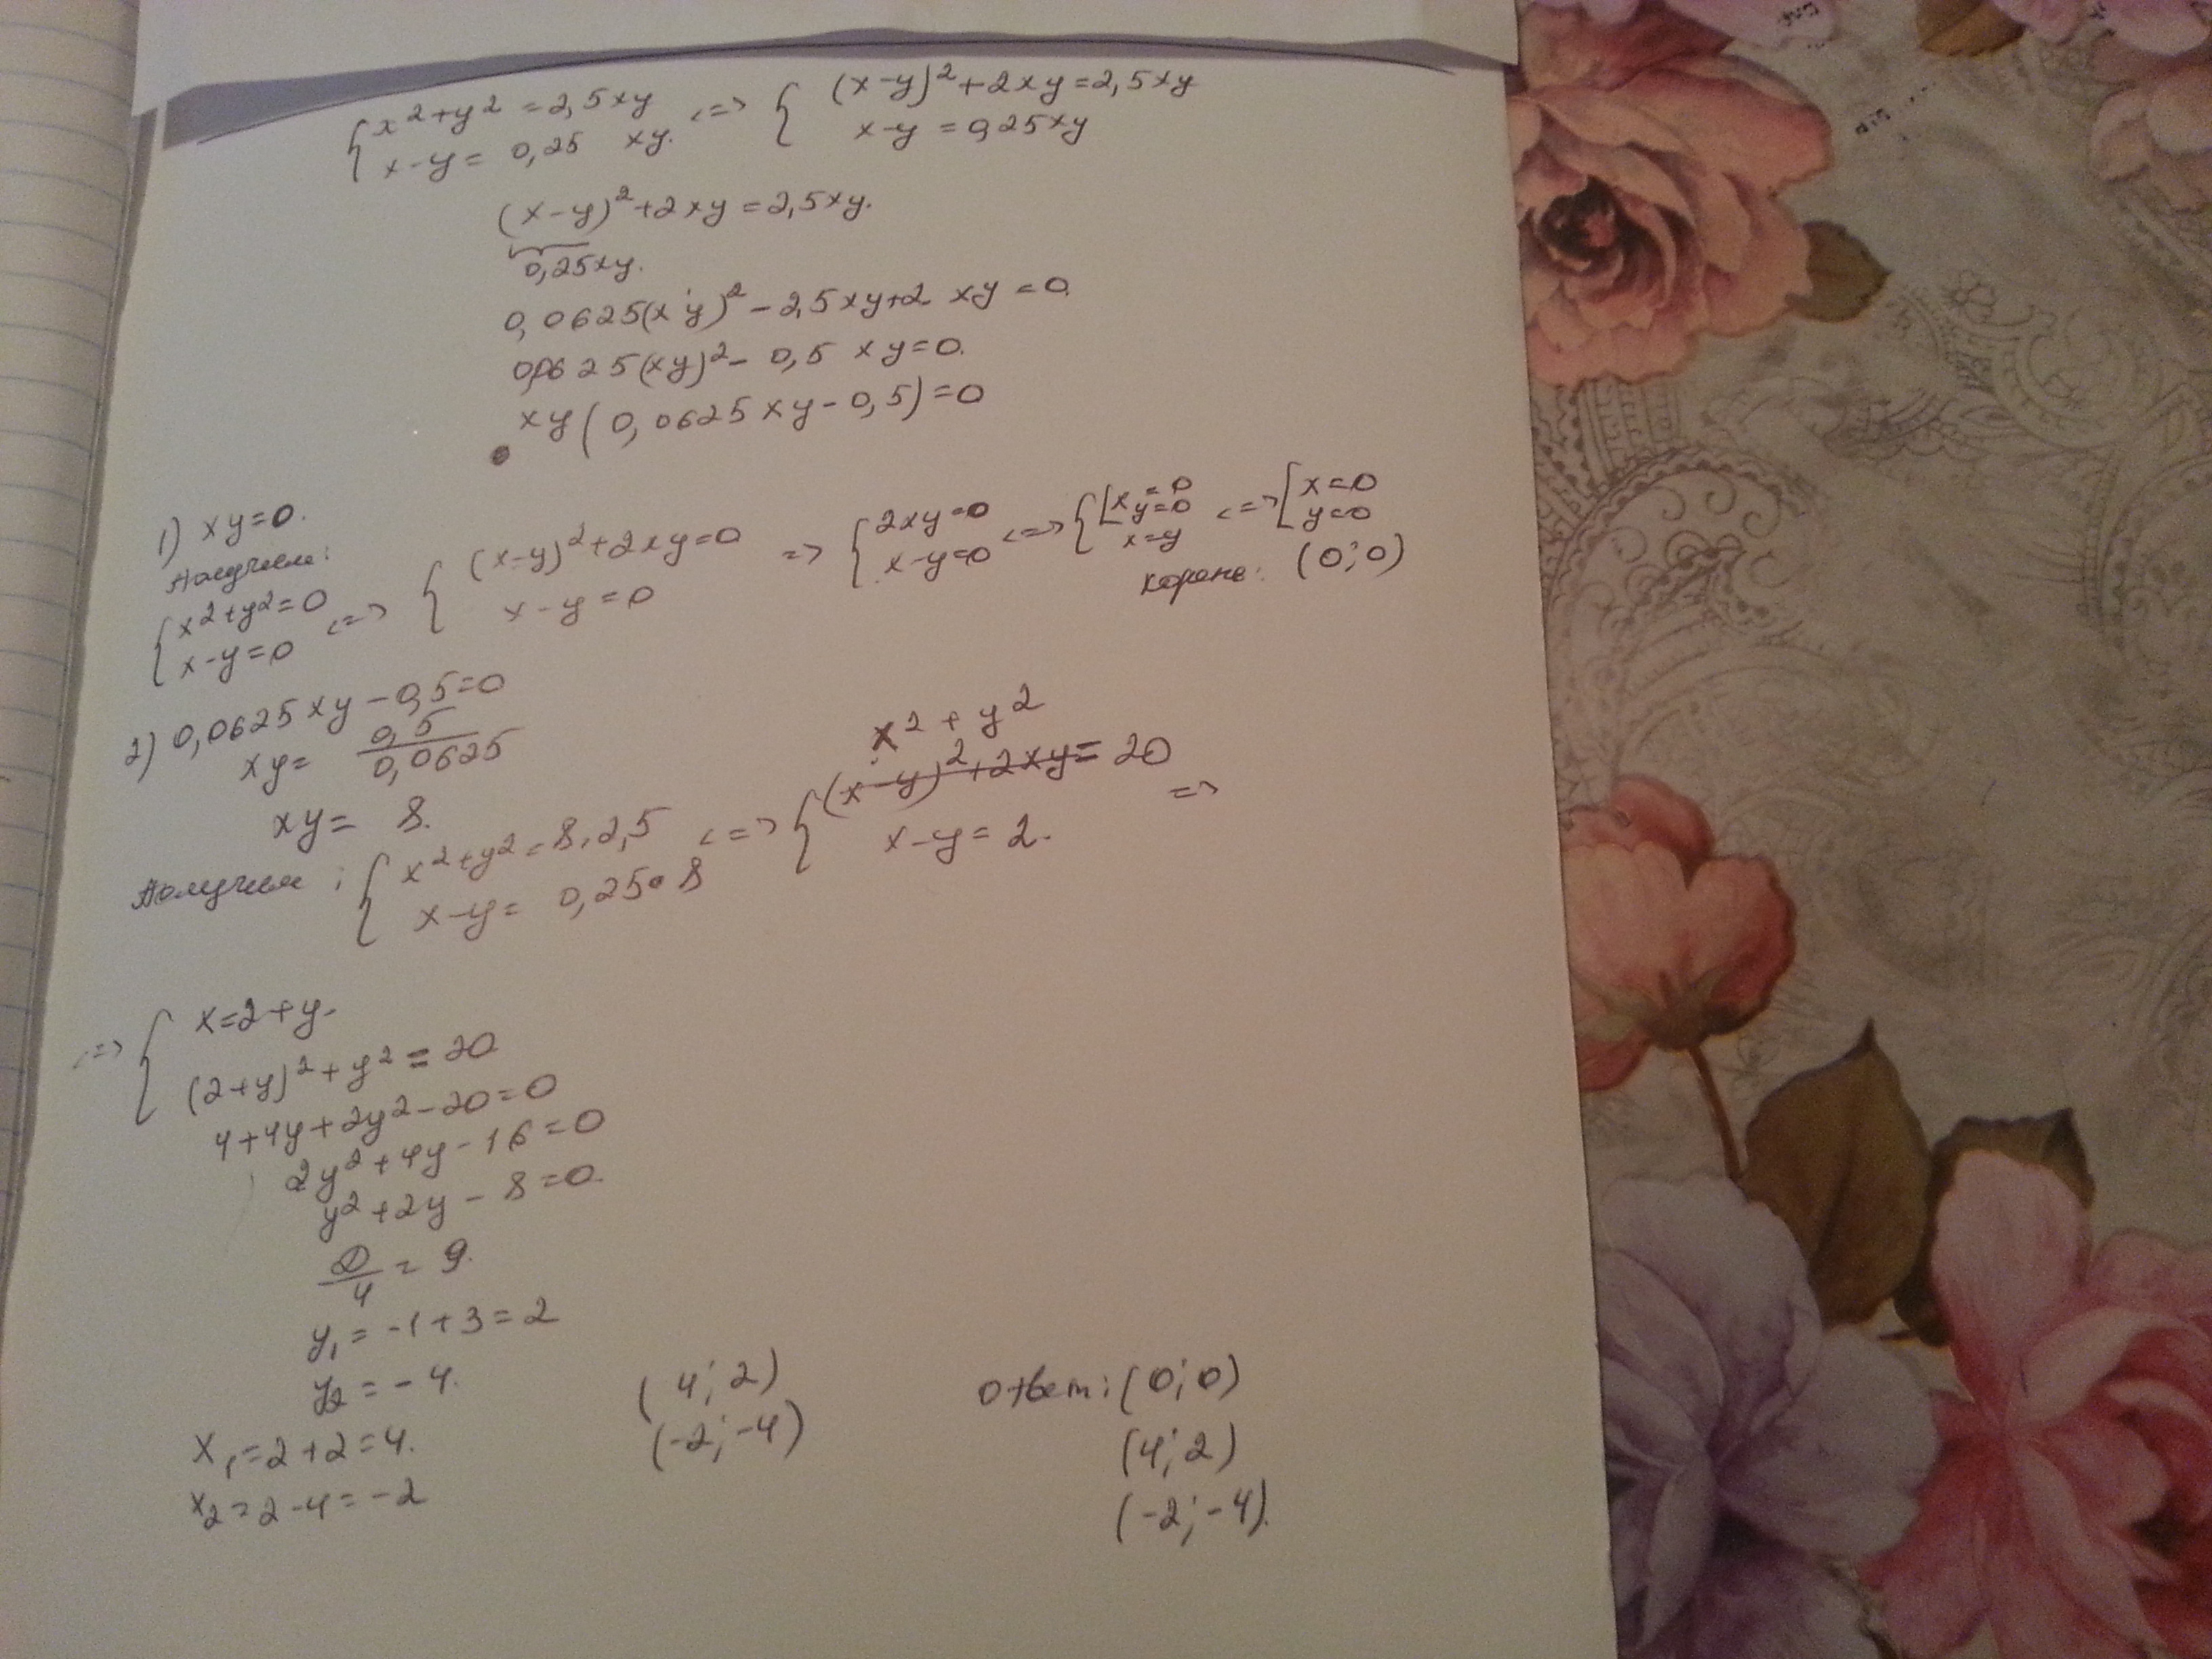 { x²+y² = 2,5xy <=> { (x-y)²+2xy=2,5xy
x-y = 0,25 xy. x-y = 0,25xy
(x-y)²+2xy = 2,5xy.
0,25xy.
0,0625(xy)² - 2,5xy+2 xy = 0.
0,0625(xy)² - 0,5 xy=0.
xy(0,0625xy-0,5)=0
1) xy=0.
Получим:
{ x²+y²=0 <=> { (x-y)²+2xy=0 => { 2xy=0 <=> { [ x=0 <=> [ x=0
x-y=0 x-y=0 x-y=0 y=0 y=0
x=y
корень: (0;0)
2) 0,0625xy-0,5=0
xy= 0,5/0,0625
xy= 8.
Получим: { x²+y²=8·2,5 <=> { x²+y² (x-y)²+2xy= 20 =>
x-y= 0,25·8 x-y= 2.
<=> { x=2+y.
(2+y)²+y²=20
4+4y+2y²-20=0
2y²+4y-16=0
y²+2y-8=0.
D/4 = 9.
y₁ = -1+3=2
y₂ = -4.
x₁=2+2=4.
x₂=2-4=-2
(4;2)
(-2;-4)
Ответ: (0;0)
(4;2)
(-2;-4).